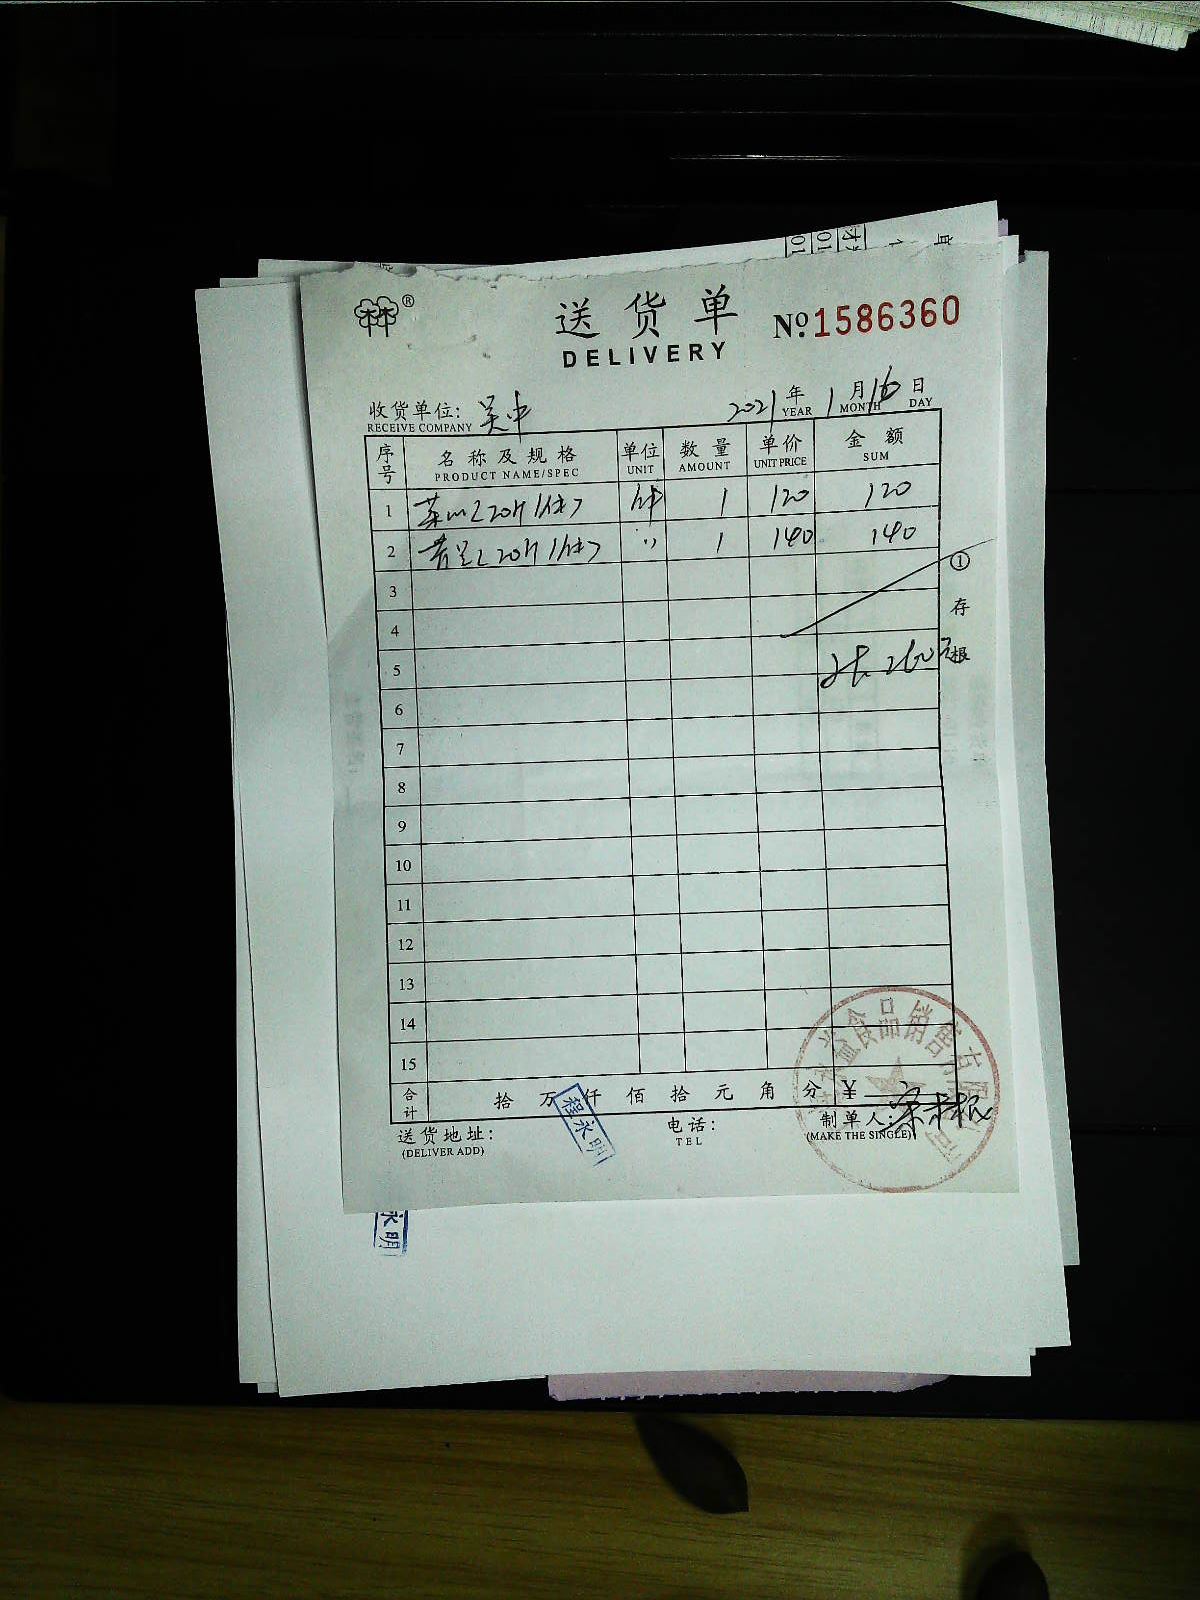 林®
送货单 №1586360
DELIVERY
收货单位: 吴中 2021年1月16日
RECEIVE COMPANY YEAR MONTH DAY
序号 名称及规格 单位 数量 单价 金额
PRODUCT NAME/SPEC UNIT AMOUNT UNIT PRICE SUM
1 件 1 120 120
2 〃 1 140 140
3
4
5 260元
6
7
8
9
10
11
12
13
14
15
① 存根
合计 拾 万 仟 佰 拾 元 角 分 ¥
送货地址: 电话: 制单人:
(DELIVER ADD) TEL (MAKE THE SINGLE)
程永明
食品销售有限公司
永明